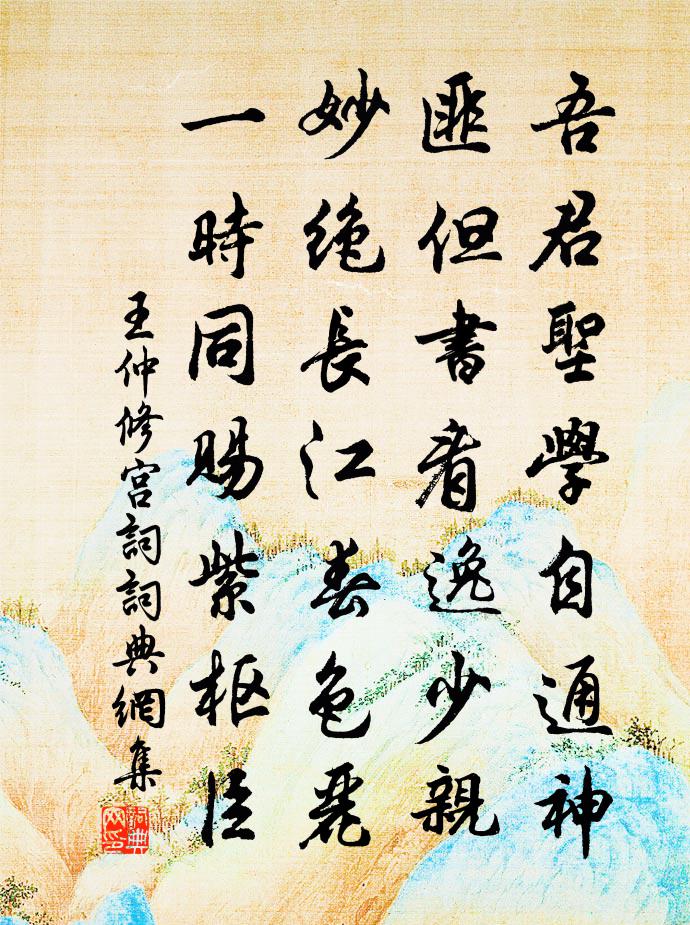 吾君聖學自通神
匪但書看逸少親
妙絶長江春色麗
一時同賜紫枢臣
王仲修宫詞詞典網集
詞典網印